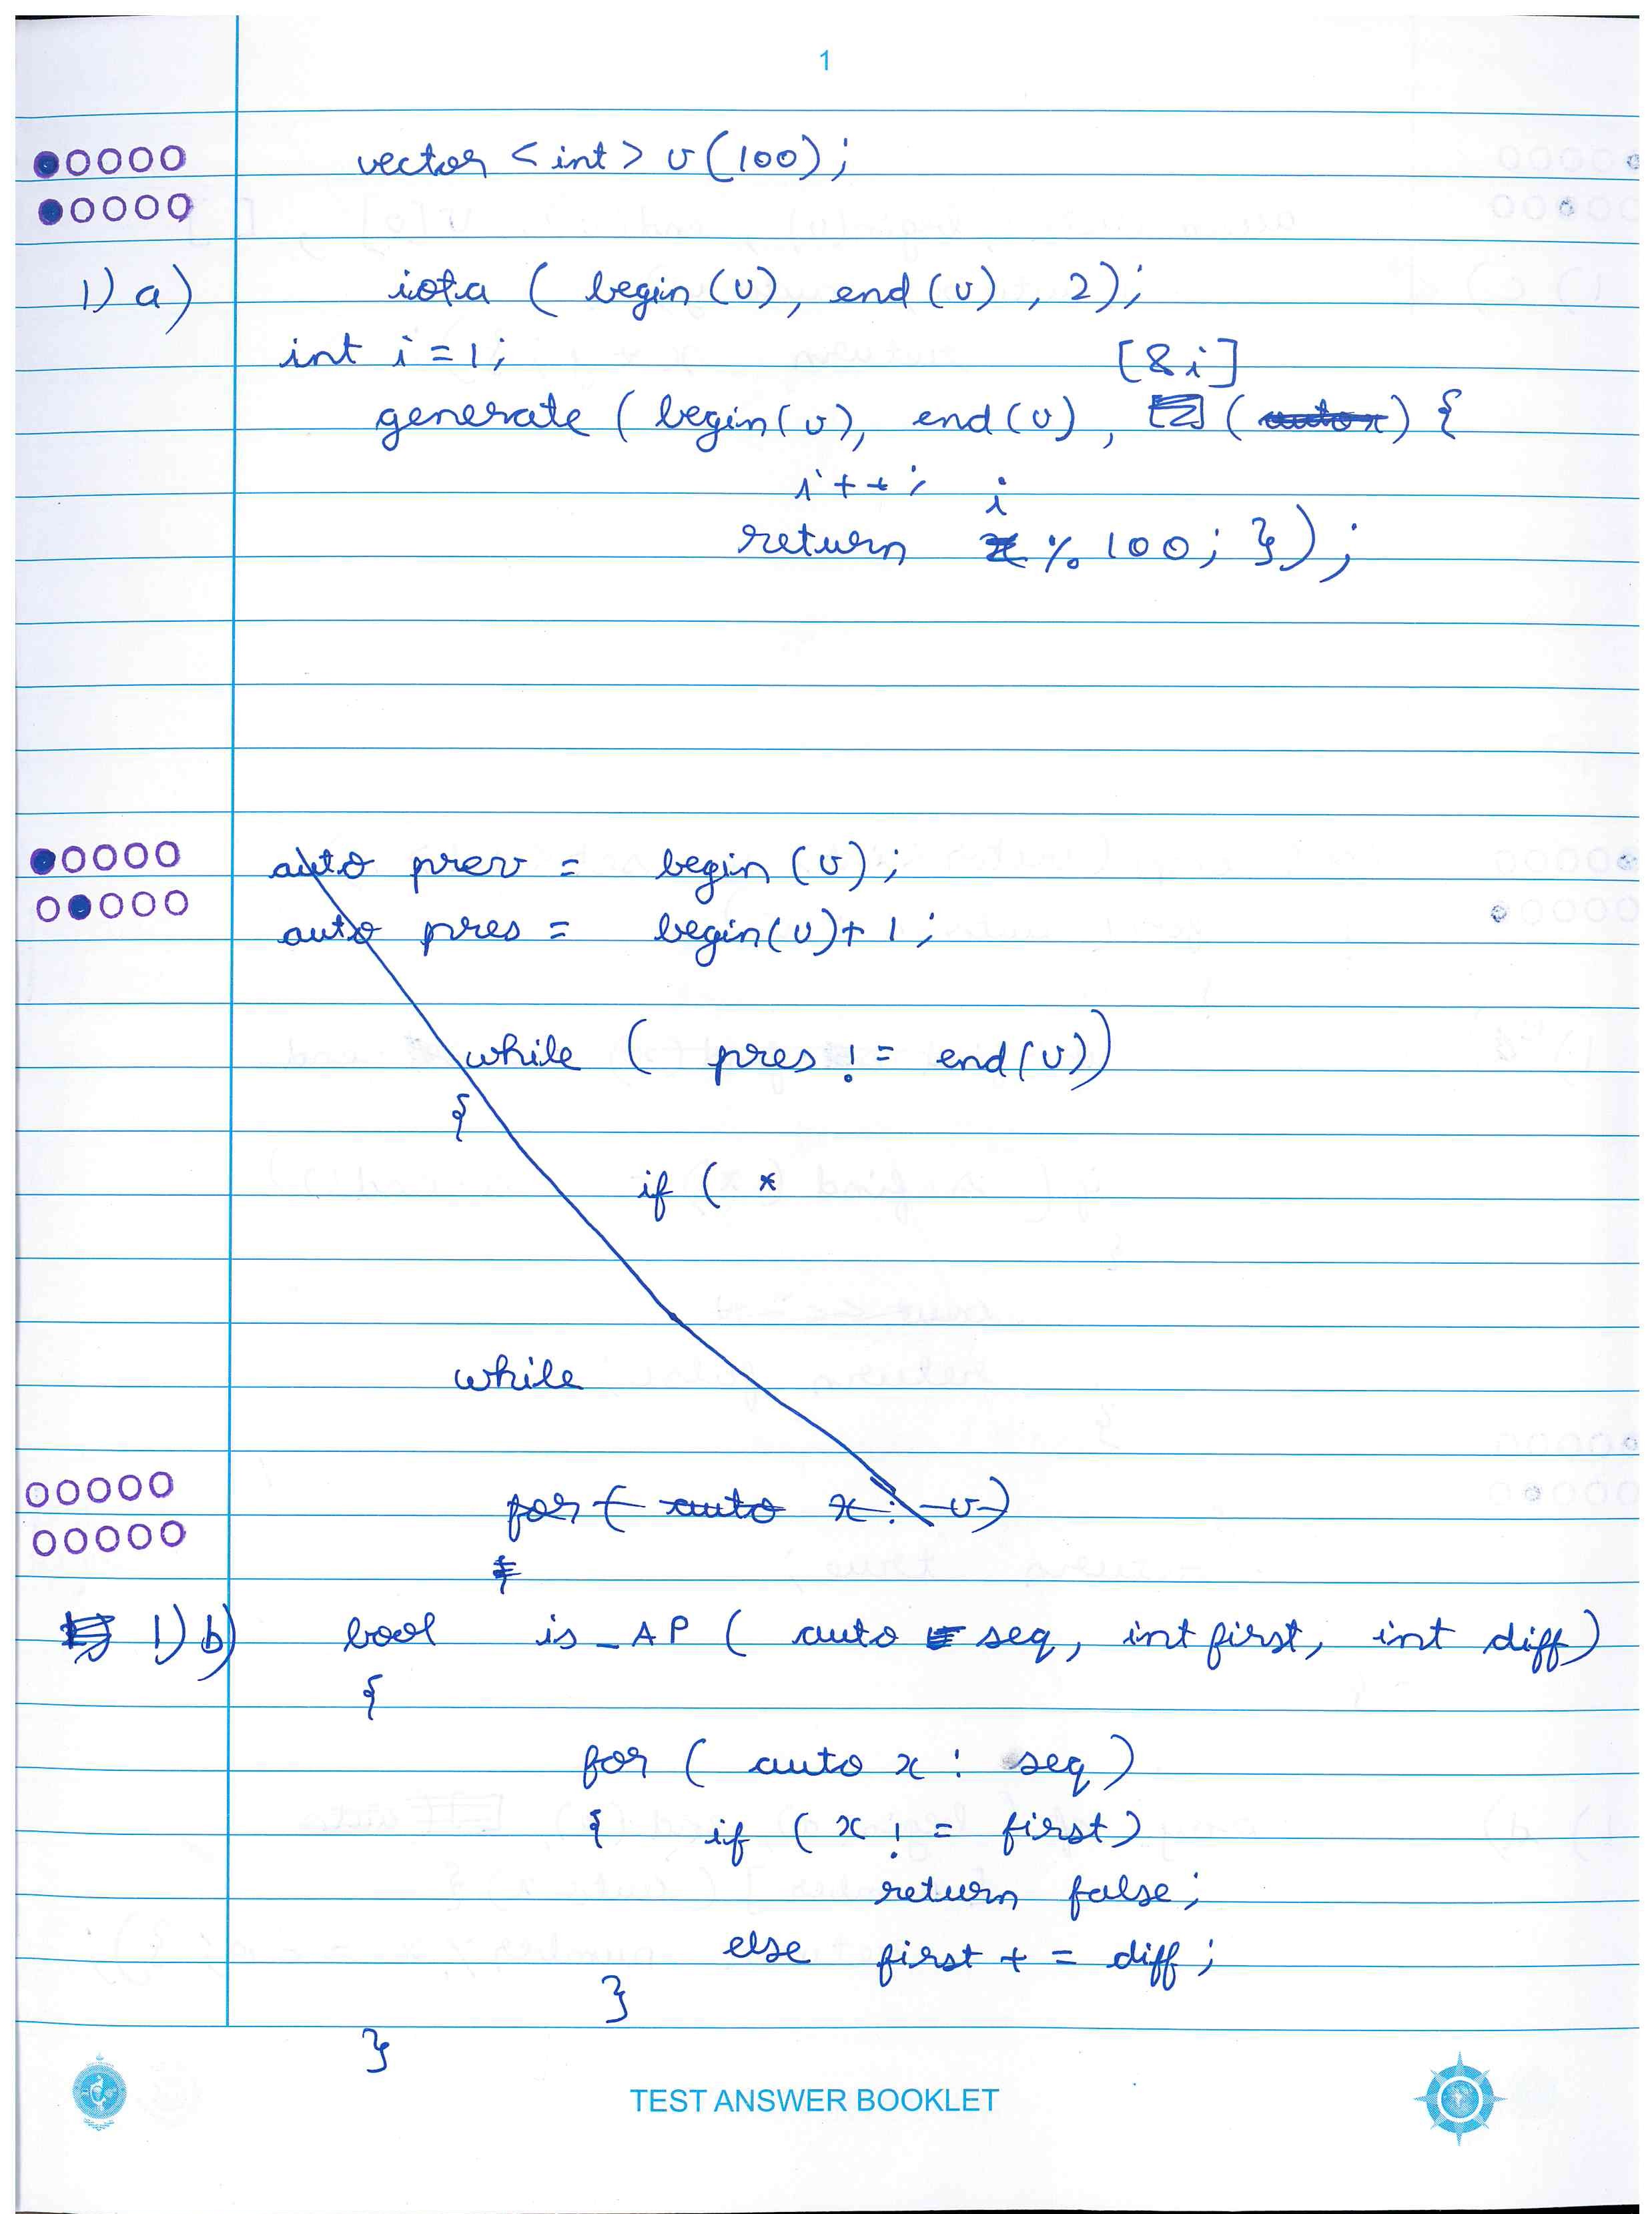 1
vector <int> v(100);
1) a) iota ( begin(v), end(v), 2);
int i = 1;
[&i]
generate ( begin(v), end(v), ( auto x ) {
i++;
i
return x % 100; });
auto prev = begin (v);
auto pres = begin(v)+ 1;
while ( pres != end(v))
{
if ( *
while
for ( auto x : v)
{
1) b) bool is_AP ( auto seq, int first, int diff)
{
for ( auto x : seq)
{ if (x != first)
return false;
else first += diff;
}
}
TEST ANSWER BOOKLET